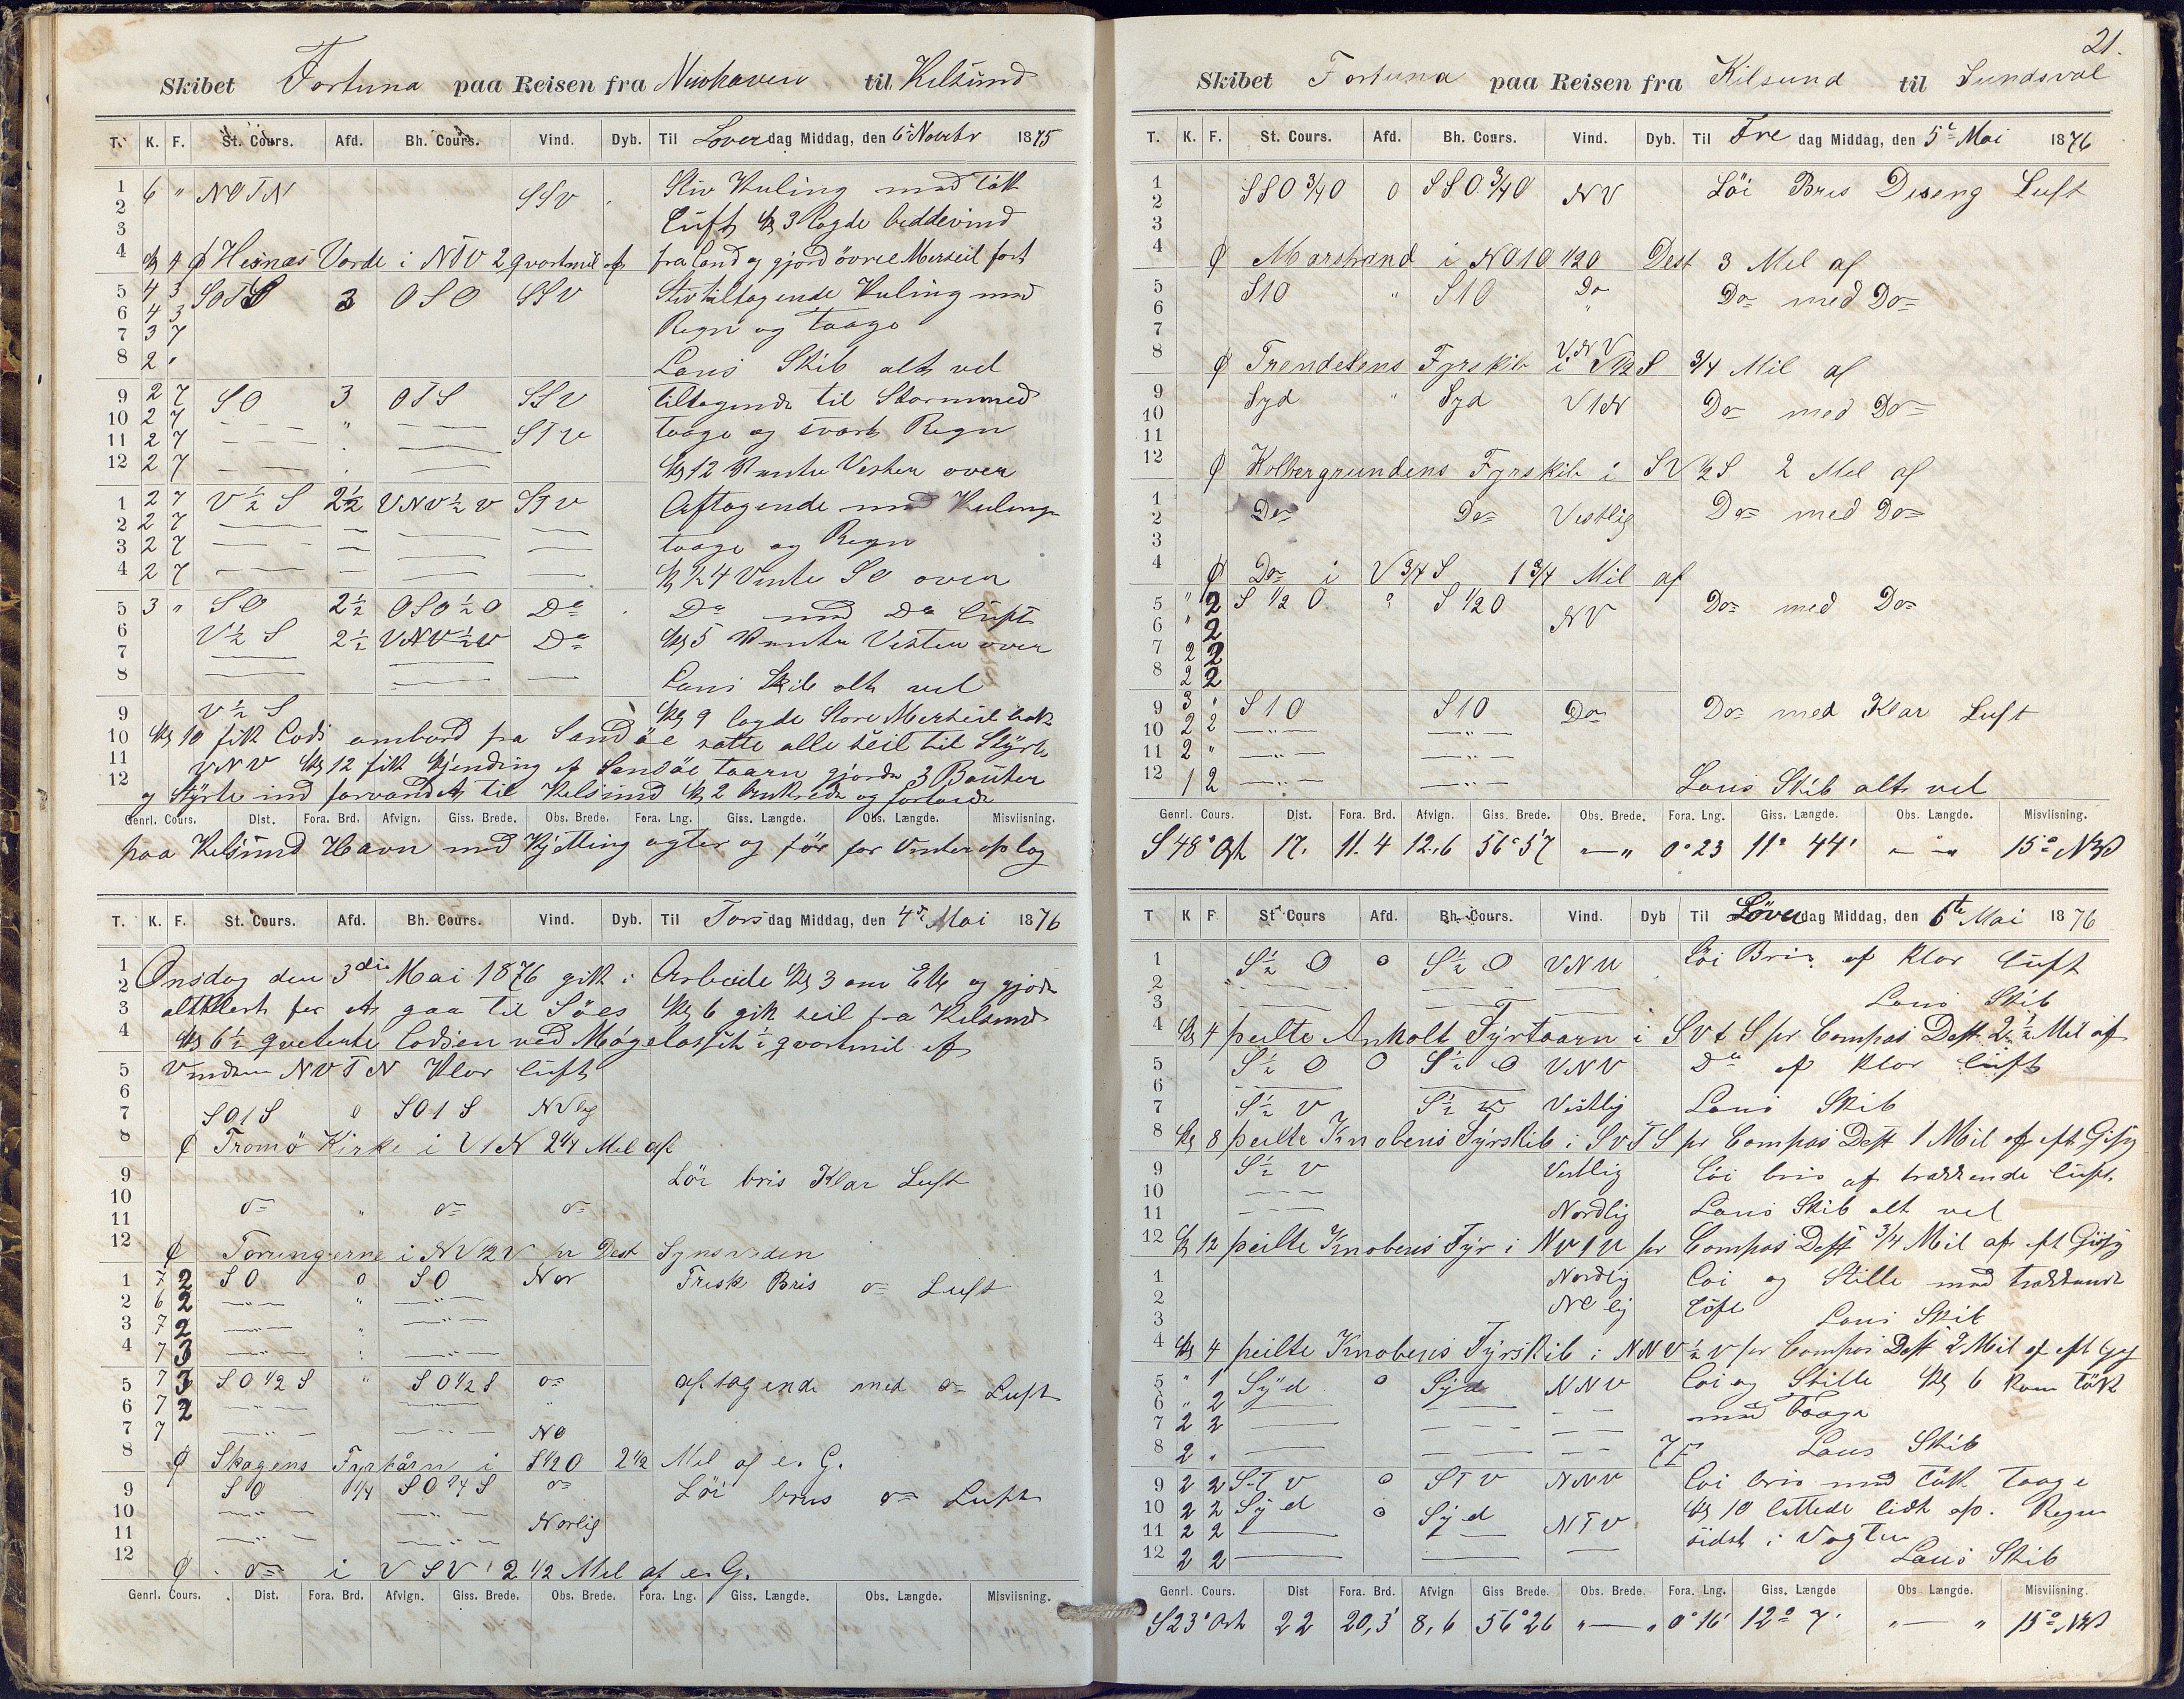 Skibet Fortuna paa Reisen fra Newhaven til Kilsund
T. K. F. St. Cours. Afd. Bh. Cours. Vind. Dyb. Til Løverdag Middag, den 6te Novbr 1875
1 6 " NOTN SSV Stiv Kuling med tökk
2 Luft Kl 3 lagde biddevind
3
4 Kl 4 φ Hesnæs Varde i NTV 2 qvartmil af fra land og gjord övre Merseil fast
5 4 3 SOTS 3 OSO SSV Stiv tiltagende Kuling med
6 4 3 Regn og Taage
7 3 7
8 2 " Lens Skib alt vel
9 2 7 SO 3 OTS SSV tiltagende til Storm med
10 2 7 — — " — — STV taage og svart Regn
11 2 7
12 2 7 — — " — — Kl 12 Vente Vesten over
1 2 7 V ½ S 2½ VNV ½ V STV Aftagende med Kuling
2 2 7 — — — — taage og Regn
3 2 7 — — — —
4 2 7 — — — — Kl ½4 Vente SO over
5 3 " SO 2½ OSO ½ O Do Do med Do Luft
6 V ½ S 2½ VNV ½ V Do Kl 5 Vente Vesten over
7 — — —
8 — — — Lens Skib alt vel
9 V ½ S Kl 9 lagde Store Merseil bak
10 Kl 10 fik Lods ombord fra Sandöe satte alle seil til Styrte
11 VNV Kl 12 fik Kjending af Sandöe taarn gjorde 3 Bauter
12 og Styrte ind farvandet til Kilsund Kl 2 Ankrede og fortøiede
Genrl. Cours. Dist. Fora. Brd. Afvign. Giss. Brede. Obs. Brede. Fora. Lng. Giss. Længde. Obs. Længde. Misviisning.
paa Kilsund Havn med Kjetting agter og för for Vinteroplag
T. K. F. St. Cours. Afd. Bh. Cours. Vind. Dyb. Til Torsdag Middag, den 4de Mai 1876
1 Onsdag den 3die Mai 1876 gik i Arbeide Kl 3 om Efte og gjorde
2
3 altklart for at gaa til Söes Kl 6 gik seil fra Kilsund
4 Kl 6½ qveterte Lodsen ved Møgelös et ½ qvartmil af
5 Vinden NVTN Klar Luft
6
7 SO1S 0 SO1S NVlig
8  φ Tromö Kirke i V1N 2¼ Mil af
9 Löi bris Klar Luft
10 do " do do
11
12  φ Torungerne i NV½V pr Dest Synsviden
1 7 2 SO 0 SO Nor Frisk Bris do Luft
2 6 2 —"— " —"—
3 7 2 —"— " —"—
4 7 3 —"— " —"—
5 7 3 SO ½ S " SO ½ S do aftagende med do Luft
6 7 2 —"— "
7 7 —"— —"— NO
8 φ Skagens Fyrtårn i S½O 2½ Mil af e. G.
9 SO 0¼ SO ¾ S do Löi bris do Luft
10 —"— —"— Norlig
11 —"— —"—
12 φ do i VSV 2 ½ Mil af e. G.
Genrl. Cours. Dist. Fora. Brd. Afvign. Giss. Brede. Obs. Brede. Fora. Lng. Giss. Længde. Obs. Længde. Misviisning.
21.
Skibet Fortuna paa Reisen fra Kilsund til Sundsval
T. K. F. St. Cours. Afd. Bh. Cours. Vind. Dyb. Til Fre dag Middag, den 5te Mai 1876
1 SSO ¾ O 0 SSO ¾ O NV Löi Bris Diseng Luft
2
3
4 φ Marstrand i NO1O ½O Dest 3 Mil af
5 S1O " S1O Do Do med Do
6
7
8 φ Trendelens Fyrskib i VNV ½ S ¾ Mil af
9 Syd " Syd V1N Do med Do
10
11
12 φ Kobbergrundens Fyrskib i SV ½ S 2 Mil af
1 Do Do Vestlig Do med Do
2
3
4 φ Do i V ¾ S 1 ¾ Mil af
5 " 2 S ½ O " S ½ O NV Do med Do
6 " 2
7 2 2
8 2 2
9 3 " S1O S1O Do Do med Klar Luft
10 2 2 —"— —"—
11 2 " —"— —"—
12 1 2 —"— —"— Lens Skib alt vel
Genrl. Cours. Dist. Fora. Brd. Afvign. Giss. Brede. Obs. Brede. Fora. Lng. Giss. Længde. Obs. Længde. Misviisning.
S 48° Ost 17. 11.4 12.6 56°57 "—" 0°23 11° 44' "—" 15° NV
T K F St Cours Afd. Bh. Cours. Vind. Dyb Til Løverdag Middag, den 6te Mai 1876
1 S ½ O 0 S ½ O VNV Löi Bris af Klar Luft
2 — — —
3 — — — Lens Skib
4 Kl 4 peilte Anholt Fyrtaarn i SVTS pr Compas Dest 2½ Mil af
5 S ½ O 0 S ½ O VNV Do af Klar Luft
6 — —
7 S ½ V S ½ V Vestlig Lens Skib
8 Kl 8 peilte Knobens Fyrskib i SVTS pr Compas Dest 1 Mil af eft Gisg
9 S ½ V Vestlig Löi bris af trækkende Luft
10 — — —
11 — — — Nordlig Lens Skib alt vel
12 Kl 12 peilte Knobens Fyr i NV1V pr Compas Dest ¾ Mil af eft Gisg
1 Nordlig Löi og Stille med trækkende
2 NO lig Löft Lens Skib
3
4 Kl 4 peilte Knobens Fyrskib i NNV ½ V pr Compas Dest 2 Mil af eft Gisg
5 " 1 Syd 0 Syd NNV Löi og Stille Kl 6 kom tökk
6 " 2 — — — med Taage
7 2 2 — — —
8 2 " — — — Lens Skib
9 2 2 STV 0 STV NNV Löi bris med tökk Taage
10 2 2 Syd 0 Syd NTV Kl 10 lettede lidt op. Regn
11 2 2 — — sidst i Vagten
12 2 2 — — — Lens Skib
Genrl. Cours. Dist Fora. Brd. Afvign Giss Brede. Obs. Brede. Fora. Lng. Giss. Længde Obs Længde. Misviisning.
S 23° Ost 22 20,3' 8,6 56°26 "—" 0°16' 12° 7' "—" 15° NV